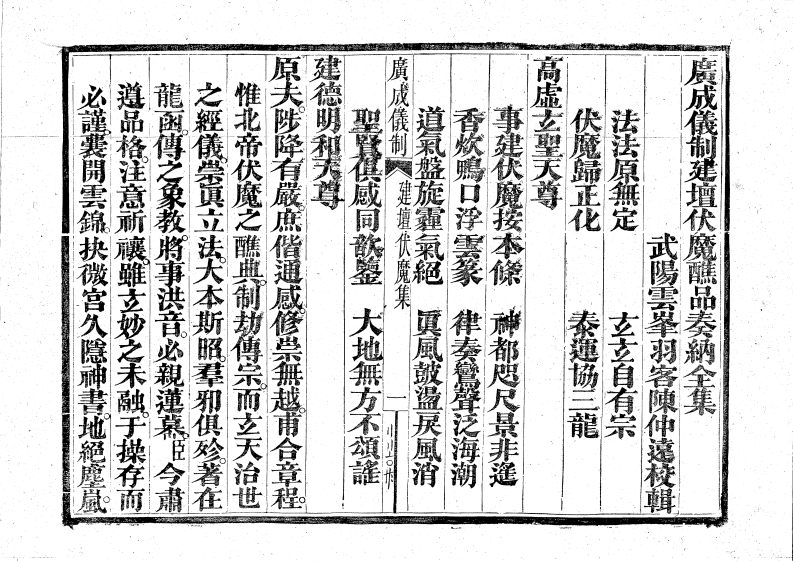 廣成儀制建壇伏魔醮品奏納全集
武陽雲峯羽客陳仲遠校輯
法法原無定 玄玄自有宗
伏魔歸正化 泰運協三龍
高虛玄聖天尊
事建伏魔按本條 神都咫尺景非遙
香炊鴨口浮雲篆 律奏鸞聲泛海潮
道氣盤旋霾氣絕 眞風鼓盪戾風消
廣成儀制 建壇伏魔集 一
聖賢俱感同歆鑒 大地無方不頌謠
建德明和天尊
原夫。陟降有嚴。庶偕通感。修崇無越。甫合章程。
惟北帝伏魔之醮典。制劫傳宗。而玄天治世
之經儀。崇眞立法。大本斯昭。羣邪俱殄。著在
龍函。傳之象教。將事洪音。必親蓮幕。臣今肅
遵品格。注意祈禳。雖玄妙之未融。于操存而
必謹。囊開雲錦。抉微宮久隱神書。地絕塵嵐。